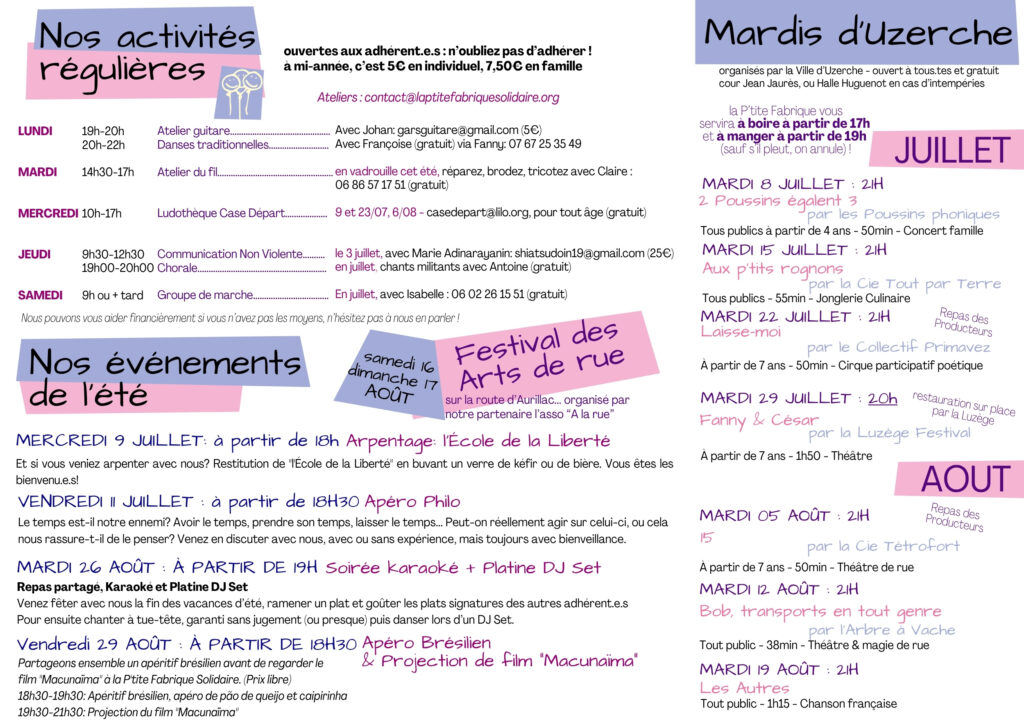 Nos activités
régulières
ouvertes aux adhérent.e.s : n'oubliez pas d'adhérer !
à mi-année, c'est 5€ en individuel, 7,50€ en famille
Ateliers : contact@laptitefabriquesolidaire.org
LUNDI 19h-20h Atelier guitare........................................ Avec Johan: garsguitare@gmail.com (5€)
20h-22h Danses traditionnelles........................ Avec Françoise (gratuit) via Fanny: 07 67 25 35 49
MARDI 14h30-17h Atelier du fil.............................................. en vadrouille cet été, réparez, brodez, tricotez avec Claire :
06 86 57 17 51 (gratuit)
MERCREDI 10h-17h Ludothèque Case Départ................. 9 et 23/07, 6/08 - casedepart@lilo.org, pour tout âge (gratuit)
JEUDI 9h30-12h30 Communication Non Violente......... le 3 juillet, avec Marie Adinarayanin: shiatsudoin19@gmail.com (25€)
19h00-20h00 Chorale.................................................... en juillet, chants militants avec Antoine (gratuit)
SAMEDI 9h ou + tard Groupe de marche.............................. En juillet, avec Isabelle : 06 02 26 15 51 (gratuit)
Nous pouvons vous aider financièrement si vous n'avez pas les moyens, n'hésitez pas à nous en parler !
Nos événements
de l'été
samedi 16
dimanche 17
AOÛT
Festival des
Arts de rue
sur la route d'Aurillac... organisé par
notre partenaire l'asso “A la rue”
MERCREDI 9 JUILLET: à partir de 18h Arpentage: l'École de la Liberté
Et si vous veniez arpenter avec nous? Restitution de "l'École de la Liberté" en buvant un verre de kéfir ou de bière. Vous êtes les
bienvenu.e.s!
VENDREDI 11 JUILLET : à partir de 18H30 Apéro Philo
Le temps est-il notre ennemi? Avoir le temps, prendre son temps, laisser le temps... Peut-on réellement agir sur celui-ci, ou cela
nous rassure-t-il de le penser? Venez en discuter avec nous, avec ou sans expérience, mais toujours avec bienveillance.
MARDI 26 AOÛT : À PARTIR DE 19H Soirée karaoké + Platine DJ Set
Repas partagé, Karaoké et Platine DJ Set
Venez fêter avec nous la fin des vacances d'été, ramener un plat et goûter les plats signatures des autres adhérent.e.s
Pour ensuite chanter à tue-tête, garanti sans jugement (ou presque) puis danser lors d'un DJ Set.
Vendredi 29 AOÛT : À PARTIR DE 18H30 Apéro Brésilien
& Projection de film "Macunaïma"
Partageons ensemble un apéritif brésilien avant de regarder le
film "Macunaïma" à la P'tite Fabrique Solidaire. (Prix libre)
18h30-19h30: Apéritif brésilien, apéro de pão de queijo et caipirinha
19h30-21h30: Projection du film "Macunaïma"
Mardis d'Uzerche
organisés par la Ville d'Uzerche - ouvert à tous.tes et gratuit
cour Jean Jaurès, ou Halle Huguenot en cas d'intempéries
la P'tite Fabrique vous
servira à boire à partir de 17h
et à manger à partir de 19h
(sauf s'il pleut, on annule) !
JUILLET
MARDI 8 JUILLET : 21H
2 Poussins égalent 3
par les Poussins phoniques
Tous publics à partir de 4 ans - 50min - Concert famille
MARDI 15 JUILLET : 21H
Aux p'tits rognons
par la Cie Tout par Terre
Tous publics - 55min - Jonglerie Culinaire
MARDI 22 JUILLET : 21H
Repas des
Producteurs
Laisse-moi
par le Collectif Primavez
À partir de 7 ans - 50min - Cirque participatif poétique
MARDI 29 JUILLET : 20h
restauration sur place
par la Luzège
Fanny & César
par la Luzège Festival
À partir de 7 ans - 1h50 - Théâtre
AOUT
MARDI 05 AOÛT : 21H
Repas des
Producteurs
15
par la Cie Tétrofort
À partir de 7 ans - 50min - Théâtre de rue
MARDI 12 AOÛT : 21H
Bob, transports en tout genre
par l'Arbre à Vache
Tout public - 38min - Théâtre & magie de rue
MARDI 19 AOÛT : 21H
Les Autres
Tout public - 1h15 - Chanson française